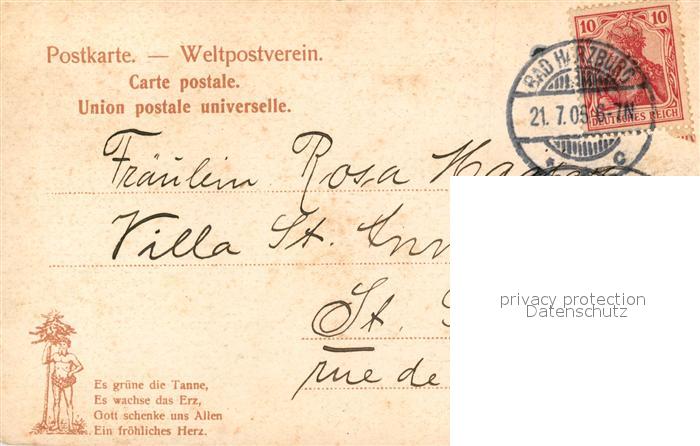 Postkarte. — Weltpostverein.
Carte postale.
Union postale universelle.
10 10
DEUTSCHES REICH
BAD HARZBURG
21. 7. 05 6-7N.
* c
Fräulein Rosa
Villa St.
St.
rue de
privacy protection
Datenschutz
Es grüne die Tanne,
Es wachse das Erz,
Gott schenke uns Allen
Ein fröhliches Herz.